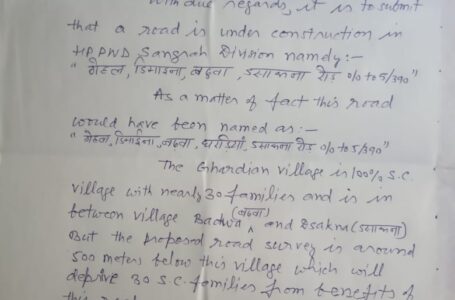 With due regards, it is to submit
that a road is under construction in
HPPWD Sangrah Division namely:-
" गेहल, डिमाईना, बढवा, डसाकना रोड 0/0 to 5/390"
As a matter of fact this road
would have been named as:-
" गेहल, डिमाईना, बढवा, घरडियां, डसाकना रोड 0/0 to 5/390"
The Ghardian village is 100% S.C.
village with nearly 30 families and is in
between village Badwa (बढवा) and Dsakna (डसाकना)
But the proposed road survey is around
500 meters below this village which will
deprive 30 S.C. families from benefits of
this road